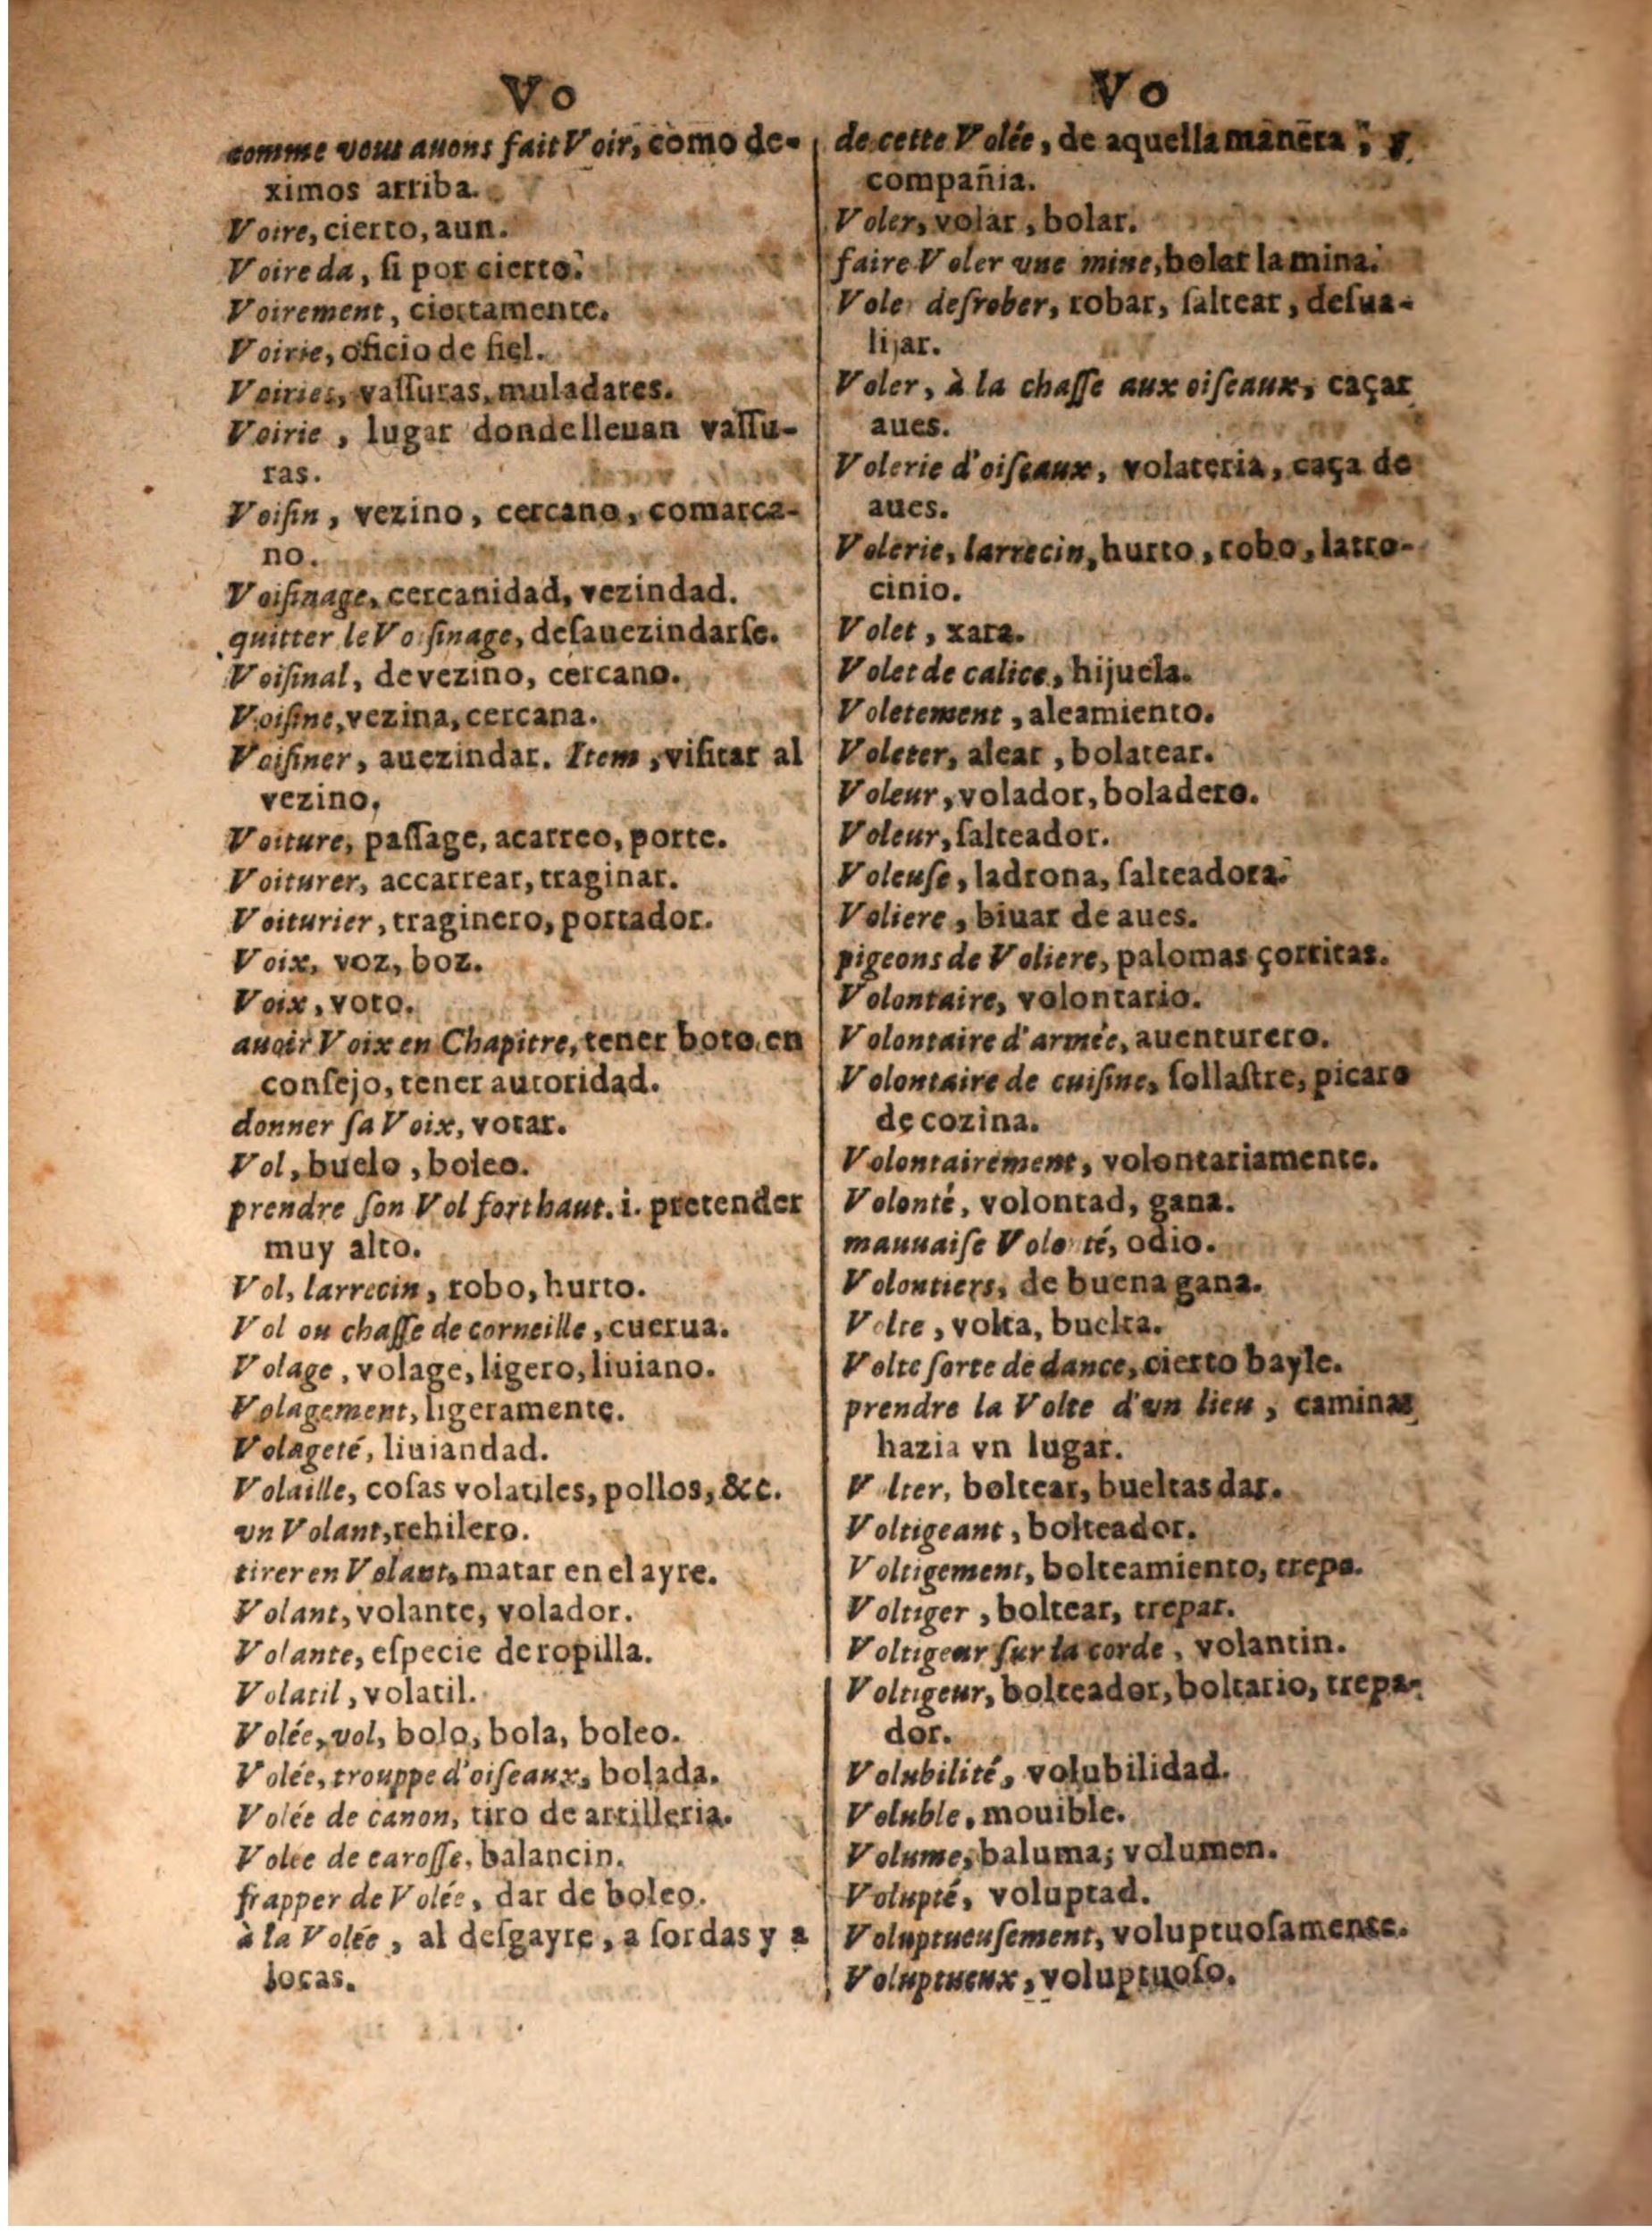 Vo
comme vous auons fait Voir, como de-
ximos arriba.
Voire, cierto, aun.
Voire da, ſi por cierto.
Voirement, ciertamente.
Voirie, oficio de fiel.
Voiries, vaſſuras, muladares.
Voirie, lugar donde lleuan vaſſu-
ras.
Voiſin, vezino, cercano, comarca-
no.
Voiſinage, cercanidad, vezindad.
quitter le Voiſinage, deſauezindarſe.
Voiſinal, de vezino, cercano.
Voiſine, vezina, cercana.
Voiſiner, auezindar. Item, viſitar al
vezino,
Voiture, paſſage, acarreo, porte.
Voiturer, accarrear, traginar.
Voiturier, traginero, portador.
Voix, voz, boz.
Voix, voto.
auoir Voix en Chapitre, tener boto en
conſejo, tener autoridad.
donner ſa Voix, votar.
Vol, buelo, boleo.
prendre ſon Vol fort haut. i. pretender
muy alto.
Vol, larrecin, robo, hurto.
Vol ou chaſſe de corneille, cuerua.
Volage, volage, ligero, liuiano.
Volagement, ligeramente.
Volageté, liuiandad.
Volaille, coſas volatiles, pollos, &c.
vn Volant, rehilero.
tirer en Volant, matar en el ayre.
Volant, volante, volador.
Volante, eſpecie de ropilla.
Volatil, volatil.
Volée, vol, bolo, bola, boleo.
Volée, trouppe d'oiſeaux, bolada.
Volée de canon, tiro de artilleria.
Volee de caroſſe, balancin.
frapper de Volée, dar de boleo.
à la Volée, al deſgayre, a ſordas y a
locas.
Vo
de cette Volée, de aquella manera, y
compañia.
Voler, volar, bolar.
faire Voler vne mine, bolar la mina.
Voler deſrober, robar, ſaltear, deſua-
lijar.
Voler, à la chaſſe aux oiſeaux, caçar
aues.
Volerie d'oiſeaux, volateria, caça de
aues.
Volerie, larrecin, hurto, robo, latro-
cinio.
Volet, xara.
Volet de calice, hijuela.
Voletement, aleamiento.
Voleter, alear, bolatear.
Voleur, volador, boladero.
Voleur, ſalteador.
Voleuſe, ladrona, ſalteadora.
Voliere, biuar de aues.
pigeons de Voliere, palomas çorritas.
Volontaire, volontario.
Volontaire d'armée, auenturero.
Volontaire de cuiſine, ſollaſtre, picaro
de cozina.
Volontairement, volontariamente.
Volonté, volontad, gana.
mauuaiſe Volo té, odio.
Volontiers, de buena gana.
Volte, volta, buelta.
Volte ſorte de dance, cierto bayle.
prendre la Volte d'vn lieu, caminar
hazia vn lugar.
V lter, boltear, bueltas dar.
Voltigeant, bolteador.
Voltigement, bolteamiento, trepa.
Voltiger, boltear, trepar.
Voltigear ſur la corde, volantin.
Voltigeur, bolteador, boltario, trepa-
dor.
Volubilité, volubilidad.
Voluble, mouible.
Volume, baluma; volumen.
Volupté, voluptad.
Voluptueuſement, voluptuoſamente.
Voluptueux, voluptuoſo.